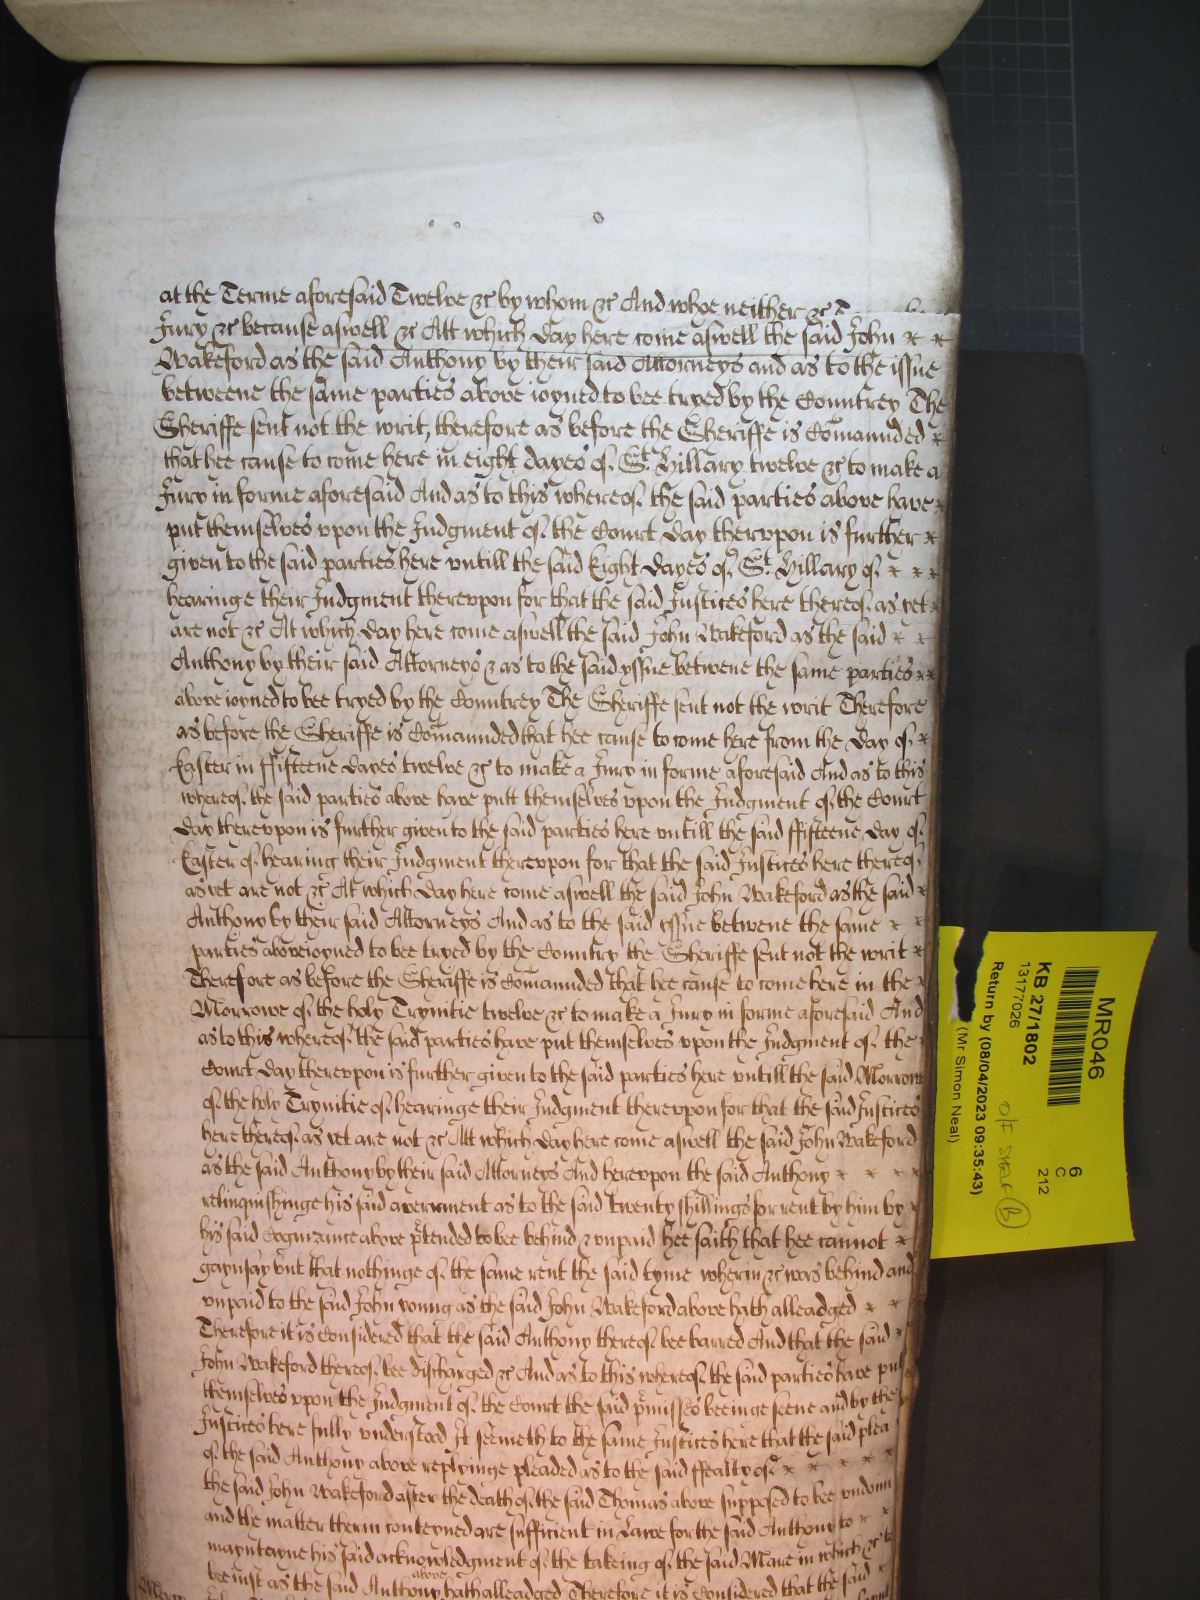 at the Terme aforesaid Twelve &c by whom &c And whoe neither &c
Jury &c because aswell &c Att which day here come aswell the said John
Wakeford as the said Anthony by their said Attorneys and as to the issue
betweene the same parties above ioyned to bee tryed by the Countrey The
Sheriffe sent not the writ, therefore as before the Sheriffe is Comaunded
that hee cause to come here in eight dayes of St Hillary twelve &c to make a
Jury in forme aforesaid And as to this whereof the said parties above have
put themselves vpon the Judgment of the Court day thervpon is further
given to the said parties here vntill the said Eight dayes of St Hillary of
hearinge their Judgment therevpon for that the said Justices here thereof as yet
are not &c At which day here come aswell the said John Wakeford as the said
Anthony by their said Attorneys & as to the said yssue betwene the same parties
above ioyned to bee tryed by the Countrey The Sheriffe sent not the writ Therefore
as before the Sheriffe is Comaunded that hee cause to come here from the day of
Easter in ffifteene dayes twelve &c to make a Jury in forme aforesaid And as to this
whereof the said parties above have putt themselves vpon the Judgment of the Court
day therevpon is further given to the said parties here vntill the said ffifteene day of
Easter of hearing their Judgment therevpon for that the said Justices here thereof
as yet are not &c At which day here come aswell the said John Wakeford as the said
Anthony by their said Attorneys And as to the said yssue betwene the same
parties above ioyned to bee tryed by the Countrey the Sheriffe sent not the writ
Therefore as before the Sheriffe is Comaunded that hee cause to come here in the
Morrowe of the holy Trynitie twelve &c to make a Jury in forme aforesaid And
as to this whereof the said parties have put themselves vpon the Judgment of the
Court day therevpon is further given to the said parties here vntill the said Morrowe
of the holy Trynitie of hearinge their Judgment therevpon for that the said Justices
here thereof as yet are not &c Att which day here come aswell the said John Wakeford
as the said Anthony by their said Attorneys And herevpon the said Anthony
relinquishinge his said averrment as to the said twenty shillings for rent by him by
his said Cognizance above p'tended to bee behind & vnpaid hee saith that hee cannot
gaynsay but that nothinge of the same rent the said tyme wherin &c was behind and
vnpaid to the said John young as the said John Wakeford above hath alleadged
Therefore it is Considered that the said Anthony thereof bee barred And that the said
John Wakeford thereof bee discharged &c And as to this whereof the said parties have put
themselves vpon the Judgment of the Court the said p'misses beeinge seene and by the
Justices here fully vnderstood It seemeth to the same Justices here that the said plea
of the said Anthony above replyinge pleaded as to the said ffealty of
the said John Wakeford after the death of the said Thomas above supposed to bee vndonn
and the matter therin conteyned are sufficient in Lawe for the said Anthony to
mayntayne his said acknowledgment of the takeing of the said Mare in which &c to
bee iust as the said Anthony above hath alleadged Therefore it is Considered that the said
MR046
KB 27/1802
13177026
Return by (08/04/2023 09:35:43)
(Mr Simon Neal)
6
C
212
O/F
B